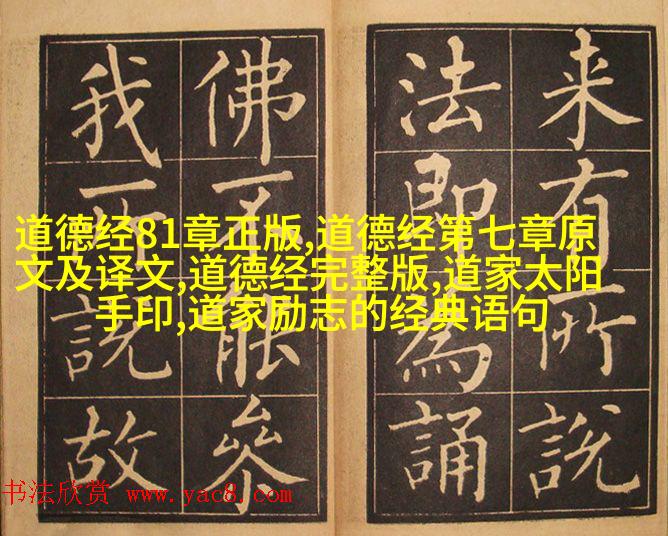 道德经81章正版,道德经第七章原
文及译文,道德经完整版,道家太阳
手印,道家励志的经典语句
来有所説
法即為誦
佛不能叅
我所説故
书法欣赏 www.yac8.com